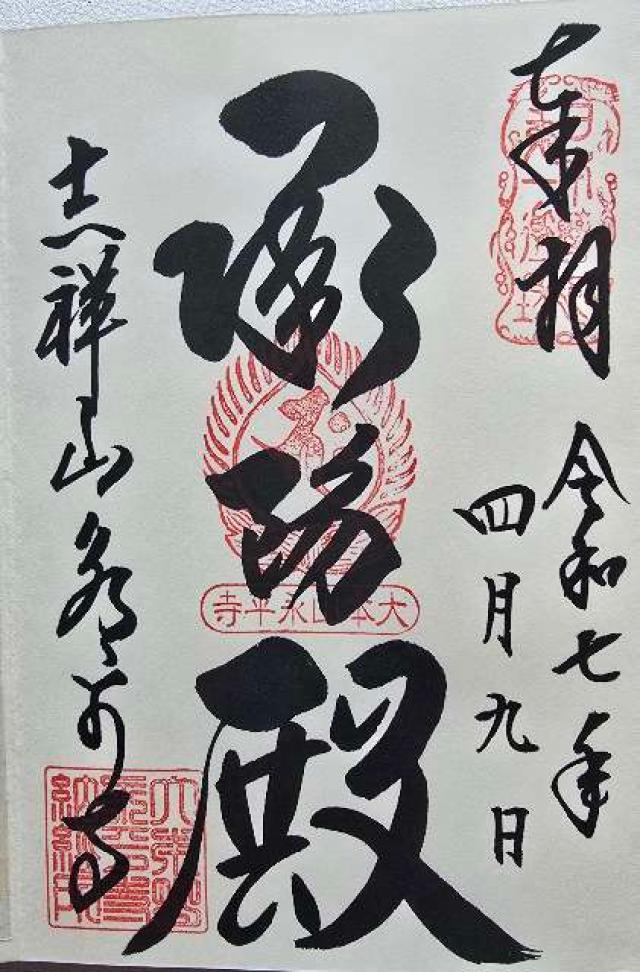 奉拜
令和七年
四月九日
承陽殿
大本山永平寺
吉祥山永平寺